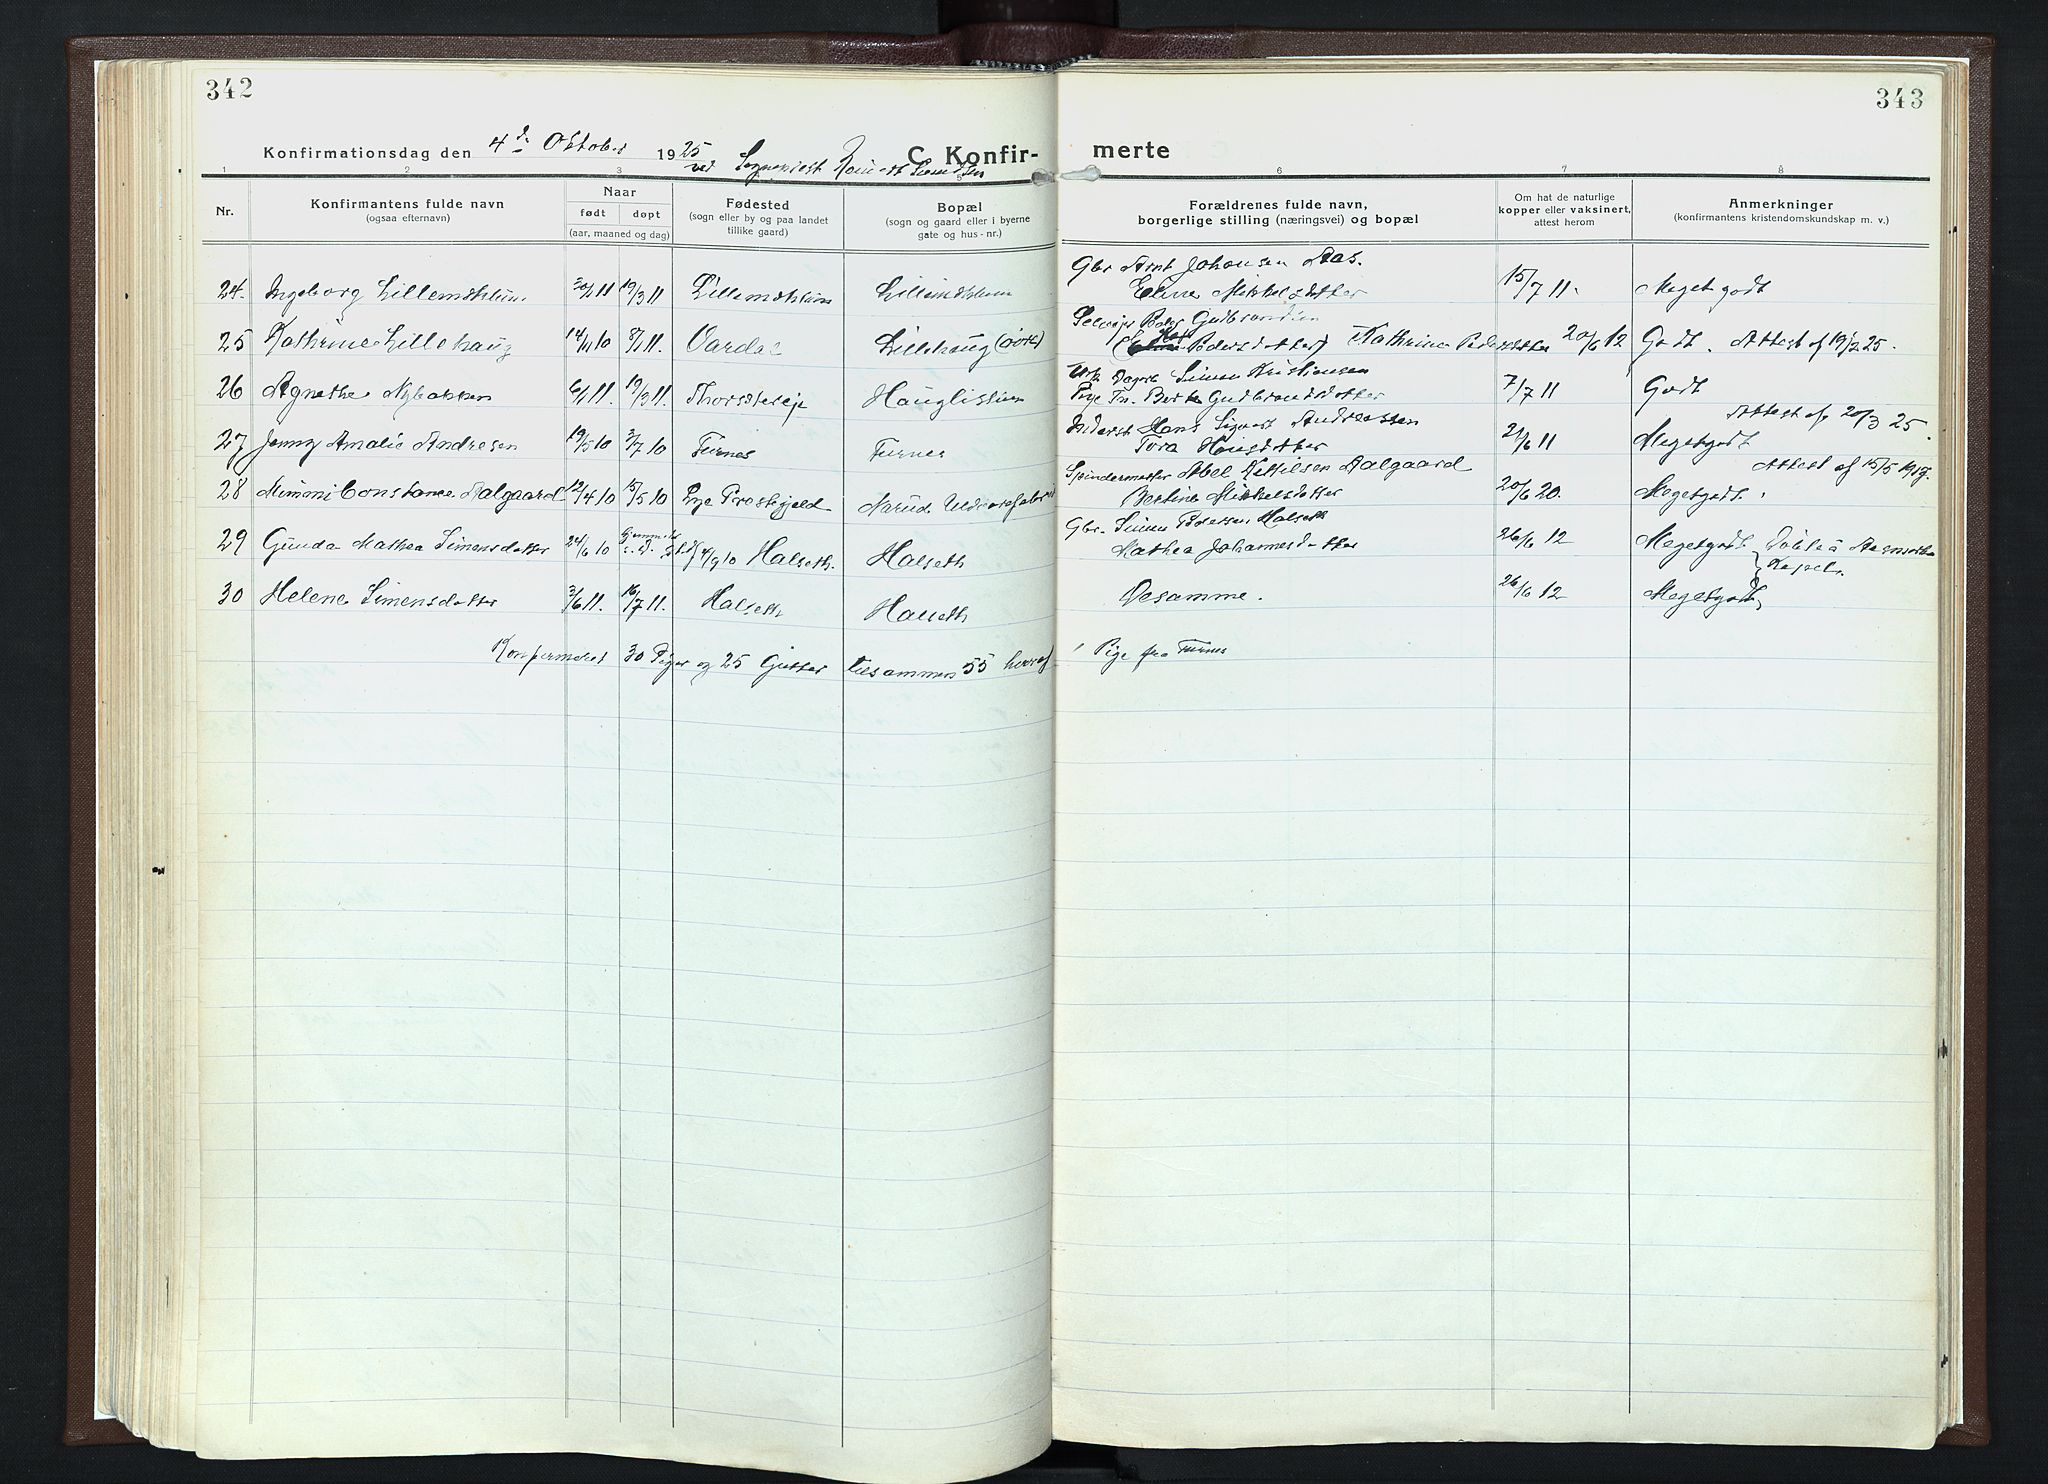 342
343
Konfirmationsdag den 4de Oktober 1925 C. Konfir- merte
ved Sogneprest
1 2 3 5 6 7 8
Nr.
Konfirmantens fulde navn
(ogsaa efternavn)
Naar
født døpt
(aar, maaned og dag)
Fødested
(sogn eller by og paa landet
tillike gaard)
Bopæl
(sogn og gaard eller i byerne
gate og hus-nr.)
Forældrenes fulde navn,
borgerlige stilling (næringsvei) og bopæl
Om hat de naturlige
kopper eller vaksinert,
attest herom
Anmerkninger
(konfirmantens kristendomskundskap m. v.)
Gbr Arnt Johansen Aas.
24. Ingeborg 30/1 11 19/3 11 Eline Mikkelsdatter 15/7 11. Meget godt
Peder Gudbrandsen
25 Kathrine Lillehaug 14/11 10 8/1 11. Vardal Lillehaug (øvre) Pedersdatter) Kathrine Pedersdatter 20/6 12 Godt. Attest af 19/2 25.
Simen Kristiansen
26 Agnethe Nybakken 6/1 11. 19/3 11. Hauglistuen Gudbrandsdatter 7/7 11 Godt
Hans Sigvart Andreassen Attest af 20/3 25.
27 Jenny Amalie Andresen 19/5 10 3/7 10 Furnes Furnes Tora Hansdatter 21/6 11 Megetgodt
Spindermester Abel Kittilsen Aalgaard Attest af 15/5 19
28 Mimmi Constance Aalgaard 12/4 10 15/5 10 Rye Prestegjeld Bertine Mikkelsdatter 20/6 20. Megetgodt
Gbr. Simen Pedersen Halseth
29 Gunda Mathea Simensdatter 24/6 10 4/9 10 Halseth. Halseth Mathea Johannesdatter 26/6 12 Megetgodt Døbt i
Kapel.
30 Helene Simensdatter 3/6 11. 16/7 11. Halseth Halseth Desamme. 26/6 12 Megetgodt
Konfirmeret 30 Piger og 25 Gutter tilsammen 55 hvoraf 1 Pige fra Furnes